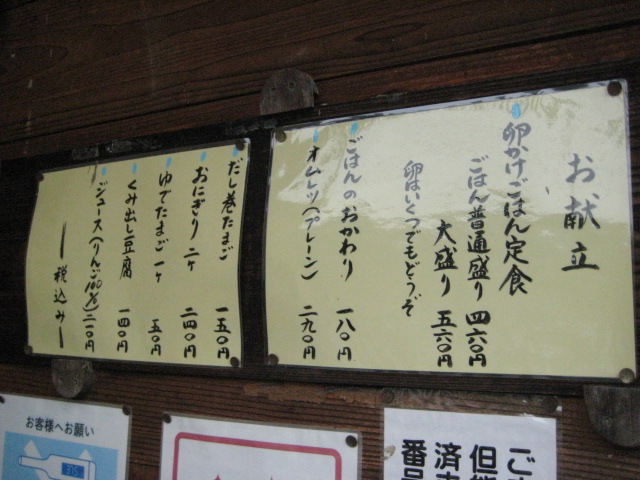 お献立
卵かけごはん定食
ごはん普通盛り 四六〇円
大盛り 五六〇円
卵はいくつでもどうぞ
ごはんのおかわり 一八〇円
オムレツ(プレーン) 二九〇円
だし巻たまご 一五〇円
おにぎり 二ヶ 二四〇円
ゆでたまご 一ヶ 五〇円
くみ出し豆腐 一四〇円
ジュース(りんご100%) 二一〇円
税込み
お客様へお願い
但
済
番